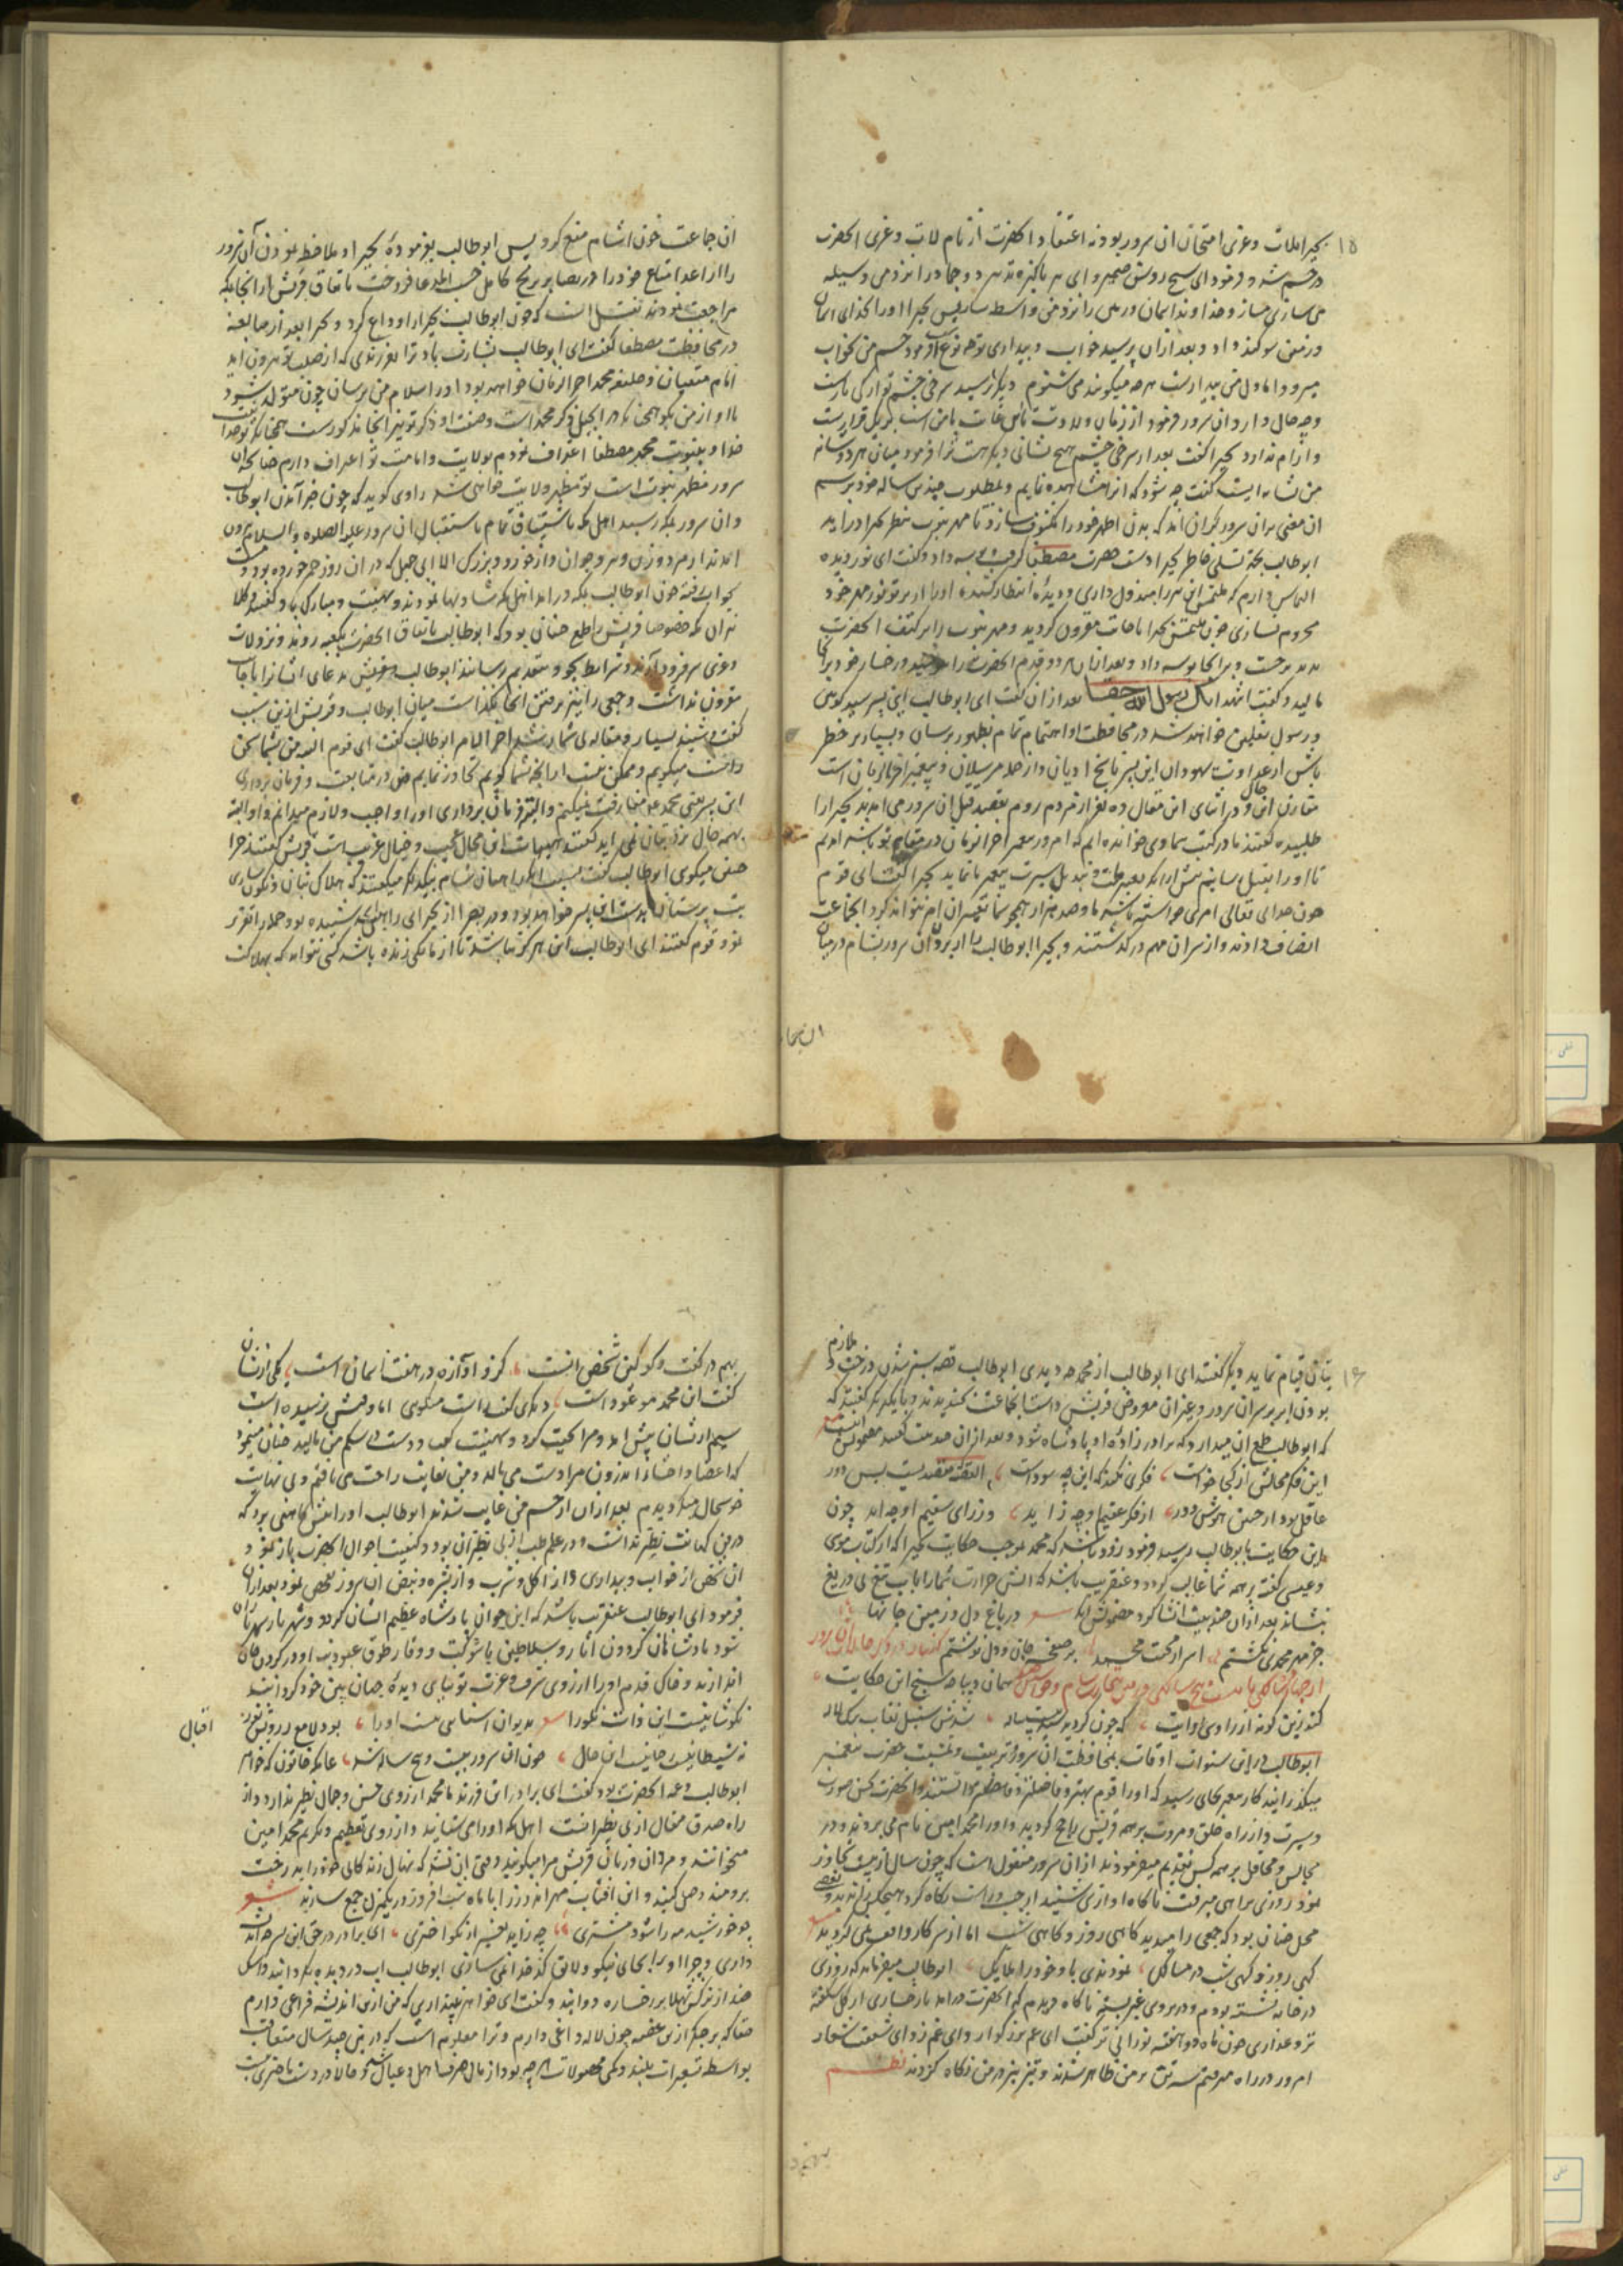 ۱۵
بحیرا بلات و عزی امتحان ان سرور بود نه اعتقاد و انحضرت از نام لات و عزی
در خشم شد و فرمود ای شیخ روشن ضمیر و ای پیر پاکیزه تدبیر دو جماد را نزد من وسیله
می سازی و خداوند ایمان و دین را نزد من واسطه ساز پس بحیرا او را بخدای
سوکند داد و بعد از ان پرسید خواب و بیداری تو چه نوع است فرمود چشم من بخواب
میرود اما دل من بیدارست هر چه میکویند می شنوم دیکر پرسید سرخی چشم تو
چه حال دارد ان سرور فرمود از زمان ولادت تا این غایت با من است بر یک قرارست
و ارام ندارد بحیرا کفت بعد از سرخی چشم هیچ نشانی دیکر هست ترا فرمود میان هر دو شانه
من نشانه ایست کفت چه شود که انرا مشاهده نمایم و بمطلوب چندین ساله خود برسم
ان معنی بران سرور کران امد که بدن اطهر خود را مکشوف سازد تا مهر نبوت بنظر بحیرا در اید
ابوطالب بجهة تسلی خاطر بحیرا دست حضرت مصطفا کرفت و بوسه داد و کفت ای نور دیده
التماس دارم که ملتمس این پیر را مبذول داری و دیدهٔ انتظار کشیده او را از پرتو نور مهر خود
محروم نسازی چون ملتمس بحیرا باجابت مقرون کردید و مهر نبوت را بر کتف انحضرت
بدید برجست و بر انجا بوسه داد و بعد از ان هر دو قدم انحضرت را بوسید و رخسار خود بر انجا
مالید و کفت اشهد انک رسول الله حقا بعد از ان کفت ای ابوطالب این پسر سید کونین
و رسول ثقلین خواهد شد در محافظت او اهتمام تمام بظهور برسان و بسیار بر خطر
باش از عداوت یهودان این پسر ناسخ ادیان و از جمله مرسلان و پیغمبر اخر الزمان است
مقارن این حال و در اثنای این مقال ده نفر از مردم روم بقصد قتل ان سرور می امدند بحیرا را
طلبیده کفتند ما در کتب سماوی خوانده ایم که امروز پیغمبر اخر الزمان در مقام تو باشد امدیم
تا او را بقتل رسانیم
چون خدای تعالی امری خواسته باشد ما و صد هزار همچو شما تغییر ان امر نتواند کرد انجماعت
انصاف دادند و از سر ان مهم درکذشتند و بحیرا ابوطالب را از بردن ان سرور بشام
ان جما
ان جماعت خون اشام منع کرد پس ابوطالب بفرمودهٔ بحیرا و ملاحظه نمودن ان سرور
را از اعدا متاع خود را در بصرا بر بحی کامل حسب المدعا فروخت باتفاق قریش از انجا بمکه
مراجعت نمودند نقلست که چون ابوطالب بحیرا را وداع کرد و بحیرا بعد از مبالغه
در محافظت مصطفا کفت ای ابوطالب بشارت باد ترا بفرزندی که از صلب تو بیرون اید
امام متقیان و خلیفه محمد اخر الزمان خواهد بود او را سلام من برسان چون متولد شود
با او از من بکو همچنانکه در انجیل ذکر محمد است وصفت و ذکر تو نیز انجا مذکورست
خدا و بنبوت محمد مصطفا اعتراف نمودم بولایت و امامت تو اعتراف دارم چنانکه ان
سرور مظهر نبوت است تو مظهر ولایت خواهی شد راوی کوید که چون خبر آمدن ابوطالب
و ان سرور بمکه رسید اهل مکه باشتیاق تمام باستقبال ان سرور علیه الصلوه والسلام بیرون
امدند از مرد و زن و پیر و جوان و از خورد و بزرک الا ابی جهل که در ان روز خمر خورده بود و مست
بخواب رفته چون ابوطالب بمکه در امد اهل مکه شادیها نمودند و تهنیت و مبارک باد کفتند
نزان مکه خصوصا قریش را طمع چنان بود که ابوطالب باتفاق انحضرت بکعبه روند و نزد لات
و عزی سر فرود آرند و شرایط بتقدیم رسانند ابوطالب و قریش مدعای ایشانرا باجابت
مقرون نداشت و جمعی را نیز نرفتن انجا نکذاشت میان ابوطالب و قریش از این سبب
کفت و شنید بسیار و مقاله بی شمار شد اخر الامر ابوطالب کفت ای قوم انچه من بشما سخن
راست میکویم و ممکن نیست از انچه بشما کویم تجاوز نمایم من در متابعت و فرمان برداری
این پسر یعنی محمد مفارقت نمیکنم و البته فرمان برداری او را واجب و لازم میدانم و او البته
بهمه حال نزد بتان نمی اید کفتند هیهات این محال عجیب و خیال غریب است قریش کفتند چرا
چنین میکوی ابوطالب کفت راهبان شام بیکدیکر میکفتند که هلاک بتان
بت پرستان بدست این پسر خواهد بود و در بصرا از بحیرای راهب شنیده بود
نمود قوم کفتند ای ابوطالب این هرکز نباشد تا از ما یکی زنده باشد کسی نتواند که بهلاکت
۱۶
بتان قیام نماید دیکر کفتند ای ابوطالب از محمد چه دیدی ابوطالب قصه سبز شدن درخت و
بودن ابر بر سر ان سرور و غیر ان معروض قریش داشت انجماعت بخندیدند و با یکدیکر کفتند که
که ابوطالب طمع ان میدارد که برادر زادهٔ او پادشاه شود و بعد از ان چند بیت کفتند مضمونش اینست
این فکر محالش از کجا خواست فکری نکند که این چه سوداست القصه مقصدیست بس دور
عاقل بود از چنین هوش دور از فکر عقیم او چه زاید وز رای سقیم او چه اید چون
این حکایت بابوطالب رسید فرمود زود باشد که محمد بموجب حکایت بحیرا که از کتاب موسی
و عیسی کفته بر همه شما غالب کردد و عنقریب باشد که اتش حرارت شما را باب تیغ بی دریغ
بنشاند بعد از ان چند بیت انشا کرد مضمونش اینکه شعر در باغ دل و زمین جانها
جز مهر محمدی نکشتم اسرار محبت محمد بر صفحهٔ جان و دل نوشتم
کند زین کونه از راوی روایت که چون کردید شدش سنبل نقاب برک لاله
ابوطالب در این سنوات اوقات بمحافظت ان سرور و تربیت و تمشیت حضرت پیغمبر
میکذرانید کار پیغمبر بجای رسید که او را قوم بهتر و فاضلتر میدانستند و انحضرت بحسن صورت
و سیرت و از راه خلق و مروت بر همه قریش راجح کردید و او را محمد امین نام می بردند و در
مجالس و محافل بر همه کس تقدیم میفرمودند از ان سرور منقول است که چون سال از بیست تجاوز
نمود روزی براهی میرفت ناکاه اوازی شنید از چپ و راست نکاه کرد هیچکس را ندید
محل چنان بود که جمعی را میدید کاهی روز و کاهی شب اما از سر کار واقف نمی کردید
کهی روز و کهی شب در مسالک نمودندی باو خود را ملایک ابوطالب میفرماید که روزی
در خانه نشسته بودم و در بروی غیر بسته ناکاه دیدم که انحضرت درامد با رخساری از کل شکفته
تر و عذاری چون ماه دو هفته نورانی تر کفت ای عم بزرکوار و ای عم زوای شفقت شعار
امروز در راه میرفتم سه تن بر من ظاهر شدند و تیز تیز در من نکاه کردند نظم
بهم در کفت و کو کین شخص انست کزو اوازه در هفت اسمان است یکی از ایشان
کفت این محمد موعود است دیکری کفت راست میکوی اما وقتش نرسیده است
سیم از ایشان پیش امد و مرا تحیت کرد و تهنیت کفت و دست بر شکم من مالید چنان مینمود
که اعضا و احشاء اندرون مرا دست می مالد و من بغایت راحت می یافتم و بی نهایت
خوشحال میکردیدم بعد از ان از چشم من غایب شدند ابوطالب او را پیش کاهنی برد که
در فن کهانت نظیر نداشت و در علم طب از بی نظیران بود و کیفیت احوال انحضرت باز نمود
ان شخص از خواب و بیداری و از اکل و شرب و از بشره و نبض ان سرور تفحص نمود بعد از ان
فرمود ای ابوطالب عنقریب باشد که این جوان پادشاه عظیم الشان کردد و شهریار
شود پادشاهان کردون اثار و سلاطین با شوکت و وقار طوق عبودیت او در کردن جان
اندازند و خاک قدم او را از روی شرف و عزت توتیای دیدهٔ جهان بین خود کردانند
نکو شانیست این ذات نکو را شعر بدیوان اشنایی نیست او را بود لامع ز رویش نور
اقبال
نه شیطانیست جانیست این حال چون ان سرور بیست و پنج ساله شد عاتکه خاتون که خواهر
ابوطالب و عمه انحضرت بود کفت ای برادر این فرزند ما محمد از روی حسن و جمال نظیر ندارد و از
راه صدق مقال از بی نظیرانست اهل مکه او را می ستایند و از روی تعظیم و تکریم محمد امین
میخوانند و مردان و زنان قریش مرا میکویند وقتی ان نشد که نهال زندکانی خود را بدرخت
برومند وصل کنید و این افتاب مهر اندوز را با ماه شب افروز در یکمنزل جمع سازند شعر
چو خورشید مه را شود مشتری چه زاید بغیر از نکو اختری ای برادر در حق این پسر چه
داری و چرا او را بجای نیکو و لایق کدخدا نمی سازی ابوطالب اب در دیده بکردانید و اشک
چند از نرکس شهلا بر رخساره دوانید و کفت ای خواهر بپنداری که من از این اندیشه فراغی دارم
حقا که بر جکر از این غصه چون لاله داغی دارم و ترا معلوم است که در این چند سال متعاقب
بواسطه تسعیرات بلند و کمی محصولات هر چه بود از مال صرف اهل و عیال شد و حالا در دست ما